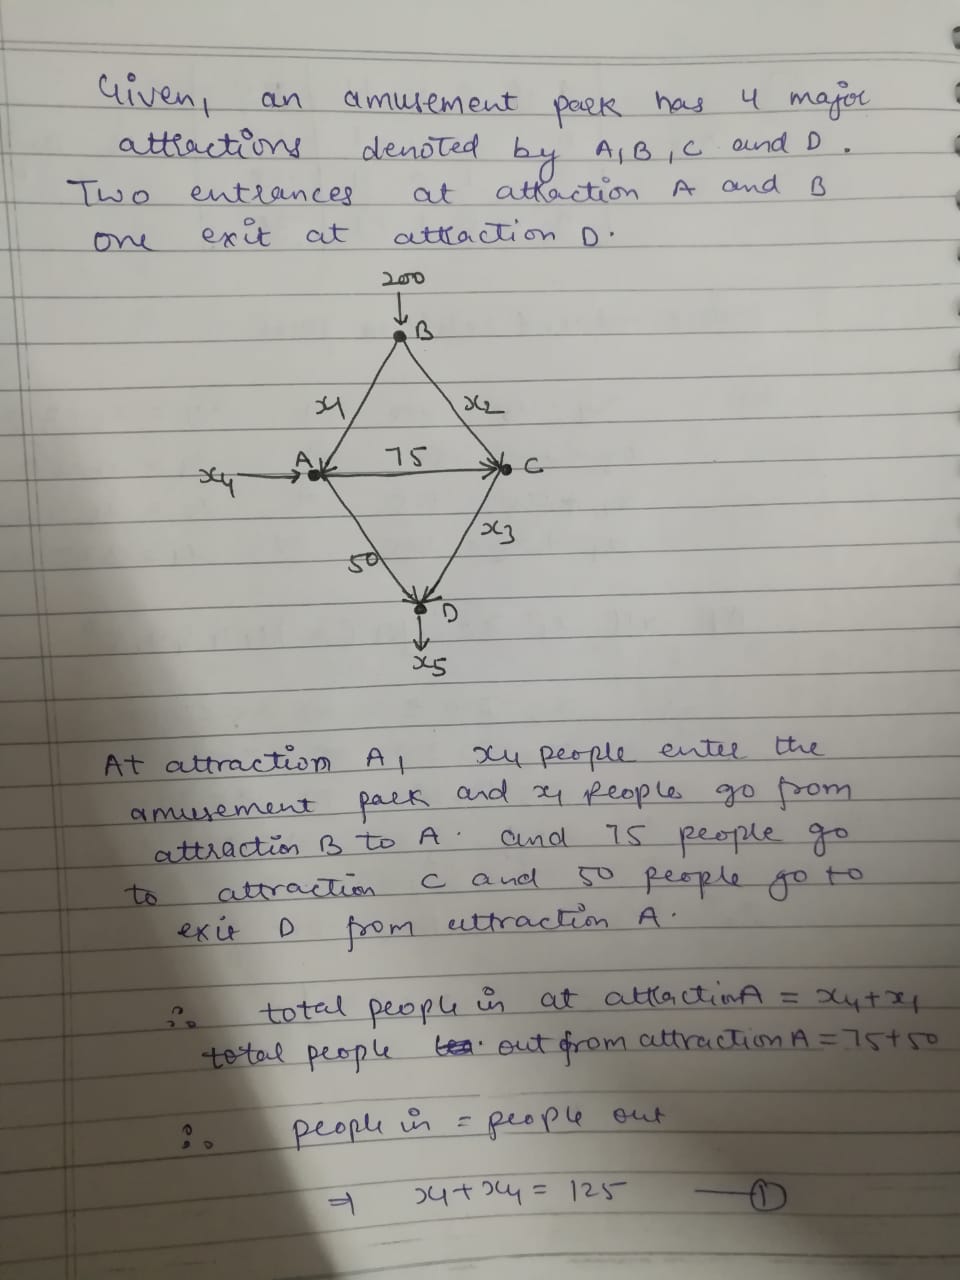 Given, an amusement park has 4 major
attractions denoted by A, B, C and D.
Two entrances at attraction A and B
one exit at attraction D.
200
B
x1
x2
A
75
C
x4
x3
50
D
x5
At attraction A, x4 people enter the
amusement park and x1 peoples go from
attraction B to A. and 75 people go
to attraction C and 50 people go to
exit D from attraction A.
∴ total people in at attractionA = x4+x1
total people out from attractionA = 75+50
∴ people in = people out
⇒ x1+x4 = 125 —①